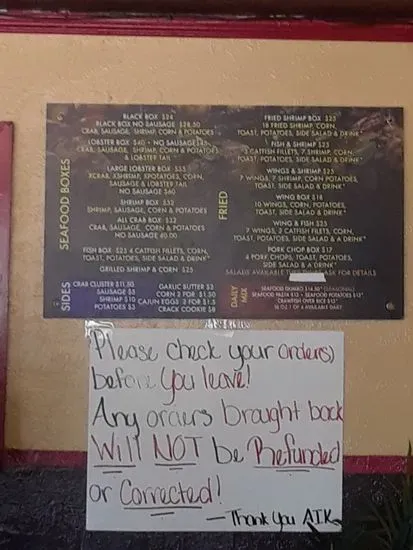 SEAFOOD BOXES
BLACK BOX $24
BLACK BOX NO SAUSAGE $28.50
CRAB, SAUSAGE, SHRIMP, CORN & POTATOES
LOBSTER BOX $40 • NO SAUSAGE $45
CRAB, SAUSAGE, SHRIMP, CORN & POTATOES
& LOBSTER TAIL
LARGE LOBSTER BOX $55
XCRAB, XSHRIMP, XPOTATOES, CORN,
SAUSAGE & LOBSTER TAIL
NO SAUSAGE $60
SHRIMP BOX $32
SHRIMP, SAUSAGE, CORN & POTATOES
ALL CRAB BOX $32
CRAB, SAUSAGE, CORN & POTATOES
NO SAUSAGE
FISH BOX $25 4 CATFISH FILLETS, CORN,
TOAST, POTATOES, SIDE SALAD & DRINK*
GRILLED SHRIMP & CORN $25
SIDES
CRAB CLUSTER $11.50
SAUSAGE $5
SHRIMP $10
POTATOES $3
GARLIC BUTTER $3
CORN 2 FOR $1.50
CAJUN EGGS 2 FOR $1.5
CRACK COOKIE $8
FRIED
FRIED SHRIMP BOX $23
18 FRIED SHRIMP, CORN,
TOAST, POTATOES, SIDE SALAD & DRINK*
FISH & SHRIMP $25
3 CATFISH FILLETS, 7 SHRIMP, CORN,
TOAST, POTATOES, SIDE SALAD & DRINK*
WINGS & SHRIMP $25
7 WINGS, 7 SHRIMP, CORN, POTATOES,
TOAST, SIDE SALAD & DRINK*
WING BOX $18
10 WINGS, CORN, POTATOES,
TOAST, SIDE SALAD & DRINK*
WING & FISH $25
7 WINGS, 2 CATFISH FILLETS, CORN,
TOAST, POTATOES, SIDE SALAD & A DRINK*
PORK CHOP BOX $17
4 PORK CHOPS, TOAST, POTATOES,
SIDE SALAD & A DRINK*
SALADS AVAILABLE ASK FOR DETAILS
DAILY MIX
SEAFOOD GUMBO $14.50* (SEASONAL)
SEAFOOD PASTA $13 • SEAFOOD POTATOES $13*
CRAWFISH OVER RICE $13*
16 OZ. 1 OF 4 AVAILABLE DAILY
Please check your order(s)
before you leave!
Any orders brought back
Will NOT be Refunded
or Corrected!
—Thank You A.I.K.